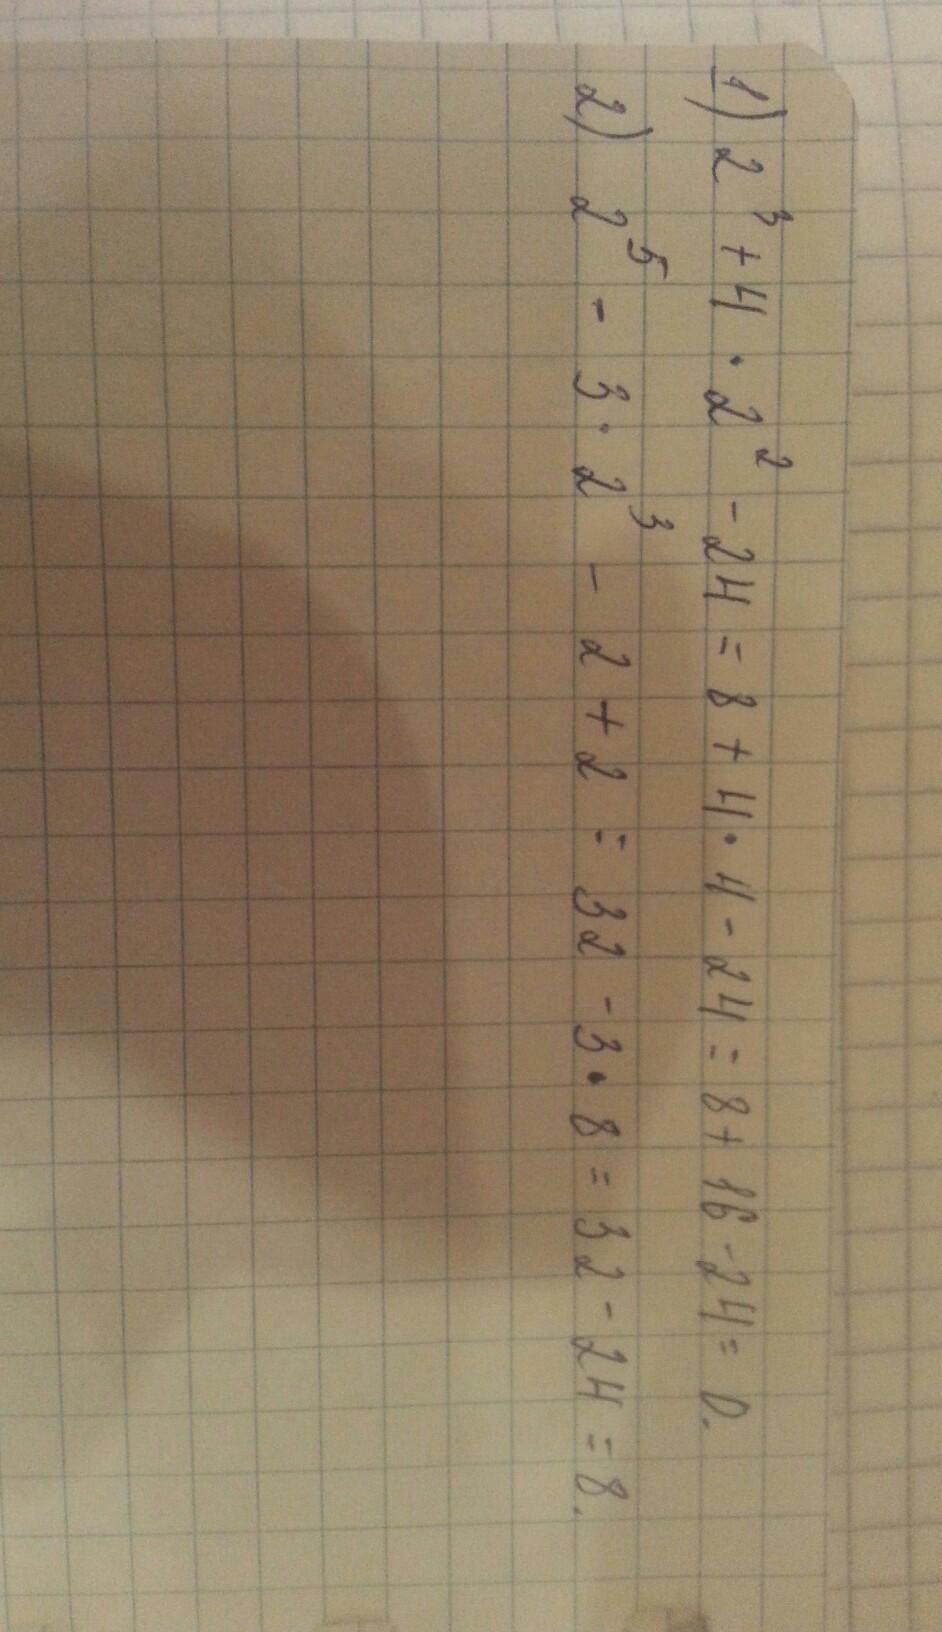 1) 2³ + 4 · 2² - 24 = 8 + 4 · 4 - 24 = 8 + 16 - 24 = 0.
2) 2⁵ - 3 · 2³ - 2 + 2 = 32 - 3 · 8 = 32 - 24 = 8.